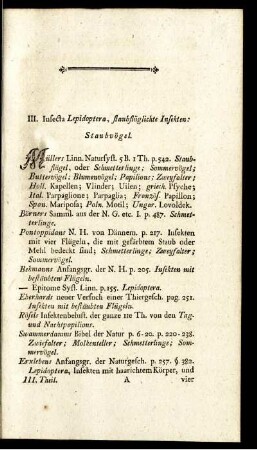 III. Insecta Lepidoptera, staubflüglichte Insekten:
Staubvögel.
Müllers Linn. Natursyst. 5 B. 1 Th. p. 542. Staub-
flügel, oder Schmetterlinge; Sommervögel;
Buttervögel; Blumenvögel; Papilions; Zweyfalter;
Holl. Kapellen; Vlinder; Uilen; griech. Psyche;
Ital. Parpaglione; Parpaglia; Französ. Papillon;
Span. Mariposa; Poln. Motil; Ungar. Lovoldek.
Börners Samml. aus der N. G. etc. I. p. 487. Schmet-
terlinge.
Pontoppidans N. H. von Dännem. p. 217. Insekten
mit vier Flügeln, die mit gefärbtem Staub oder
Mehl bedeckt sind; Schmetterlinge; Zweyfalter;
Sommervögel.
Bekmanns Anfangsgr. der N. H. p. 205. Insekten mit
bestäubten Flügeln.
— Epitome Syst. Linn. p. 155. Lepidoptera.
Eberhards neuer Versuch einer Thiergesch. pag. 251.
Insekten mit bestäubten Flügeln.
Rösels Insektenbelust. der ganze 1te Th. von den Tag-
und Nachtpapilions.
Swammerdamms Bibel der Natur p. 6-20. p. 220-238.
Zwiefalter; Molkenteller; Schmetterlinge; Som-
mervögel.
Erxlebens Anfangsgr. der Naturgesch. p. 257. §. 382.
Lepidoptera, Insekten mit haarichtem Körper, und
III. Theil. A vier